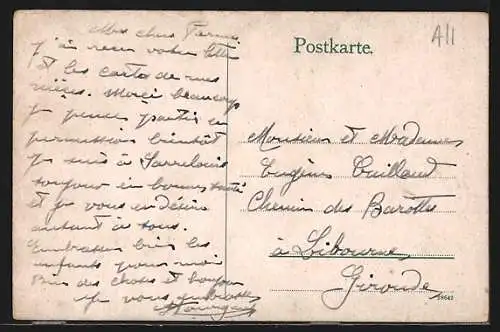 Mes chers
j'ai reçu votre lettre
et les cartes de mes
nièces. Merci beaucoup
je pense partir en
permission bientôt
je suis à Sarrelouis
toujours en bonne santé
et je vous en désire
autant à tous.
Embrassez bien les
enfants pour moi
Bien des choses et bonjour
je vous embrasse
Postkarte.
All
Monsieur et Madame
Eugène
Chemin des
à Libourne
Gironde